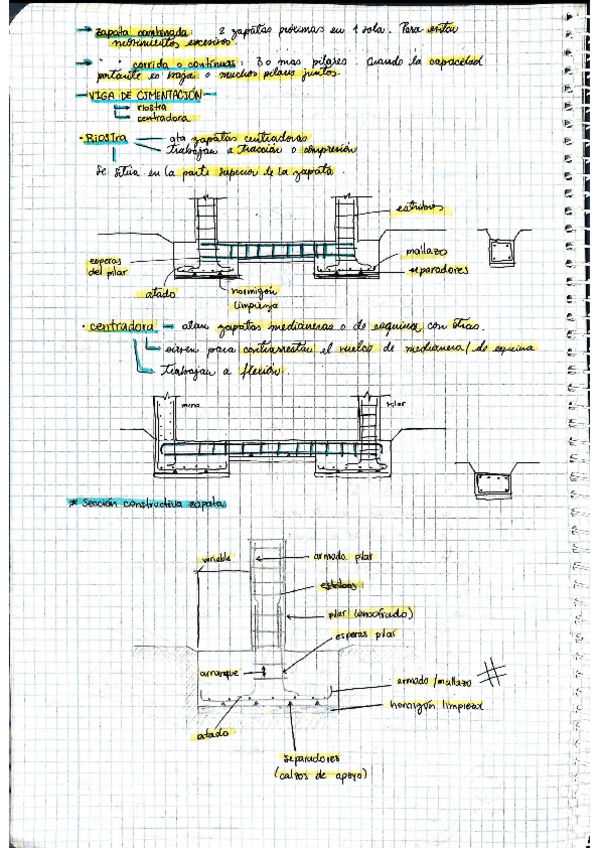 → zapata combinada: 2 zapatas próximas en 1 sola. Para evitar
movimientos excesivos.
→ " corrida o continuas: 3 o mas pilares. Cuando la capacidad
portante es baja o muchos pilares juntos.
- VIGA DE CIMENTACIÓN -
riostra
centradora
· RIOSTRA — ata zapatas centradoras
Trabajan a tracción o compresión
Se sitúa en la parte superior de la zapata.
estribos
esperas
del pilar
mallazo
separadores
atado
hormigón
limpieza
· centradora — atan zapatas medianeras o de esquina con otras.
sirven para contrarrestar el vuelco de medianera / de esquina
Trabajan a flexión.
muro
pilar
* Sección constructiva zapata
variable
armado pilar
estribos
pilar (encofrado)
esperas pilar
arranque
armado / mallazo
hormigón limpieza
atado
separadores
(calzos de apoyo)